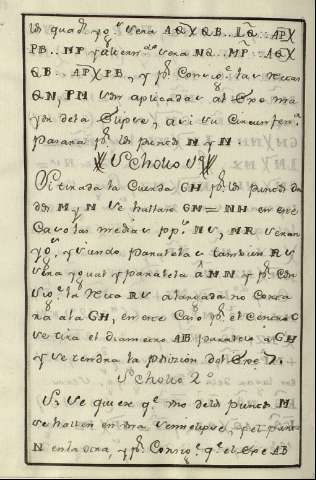 un quad.º y q.e vera AQ X QB .. LQ .. AP X
PB .. NP y altern.do vera NQ .. MP .. AQ X
QB .. AP X PB, y p.r Consig.e las rectas
QN, PM son aplicadas al Exe ma
yor de la Elipse, asi su Circunferen.a
pasara p.r los puntos M y N
Scholio 1º
Si tirada la Cuerda GH p.r los puntos da
dos M y N se hallare GM = NH en este
Caso las medias pp. MS, NR seran
yg.s, y siendo paralelas tambien RS
sera ygual y paralela â MN y p.r Con
sig.e la recta RS alargada no Corta
ra a la GH, en este Caso p.r el Centro C
se tira el diametro AB paralelo a GH
y se tendra la posizion del Exe
Scholio 2º
Si se quiere q.e uno de los puntos M
se hallen en una semielipse, y el punto
N en la otra y p.r Consig.e q.e el Exe AB